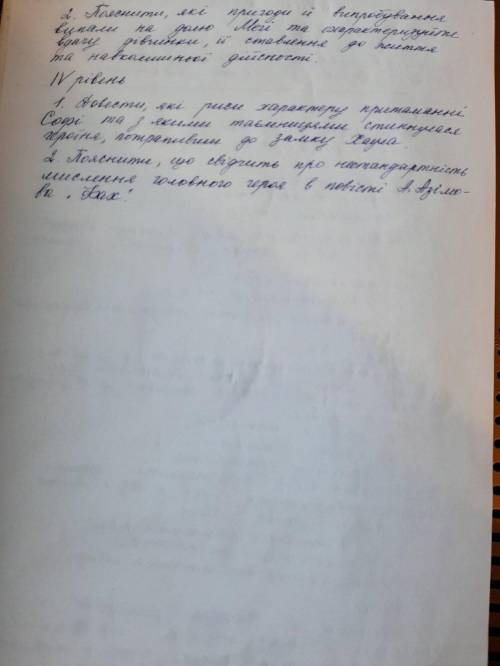 2. Пояснити, які пригоди й випробування
випали на долю Меґі та охарактеризуйте
вдачу дівчинки, її ставлення до життя
та навколишньої дійсності.
IV рівень
1. Довести, які риси характеру притаманні
Софі та з якими таємницями стикнулася
героїня, потрапивши до замку Хаула.
2. Пояснити, що свідчить про нестандартність
мислення головного героя в повісті А. Азімо-
ва "Фах".